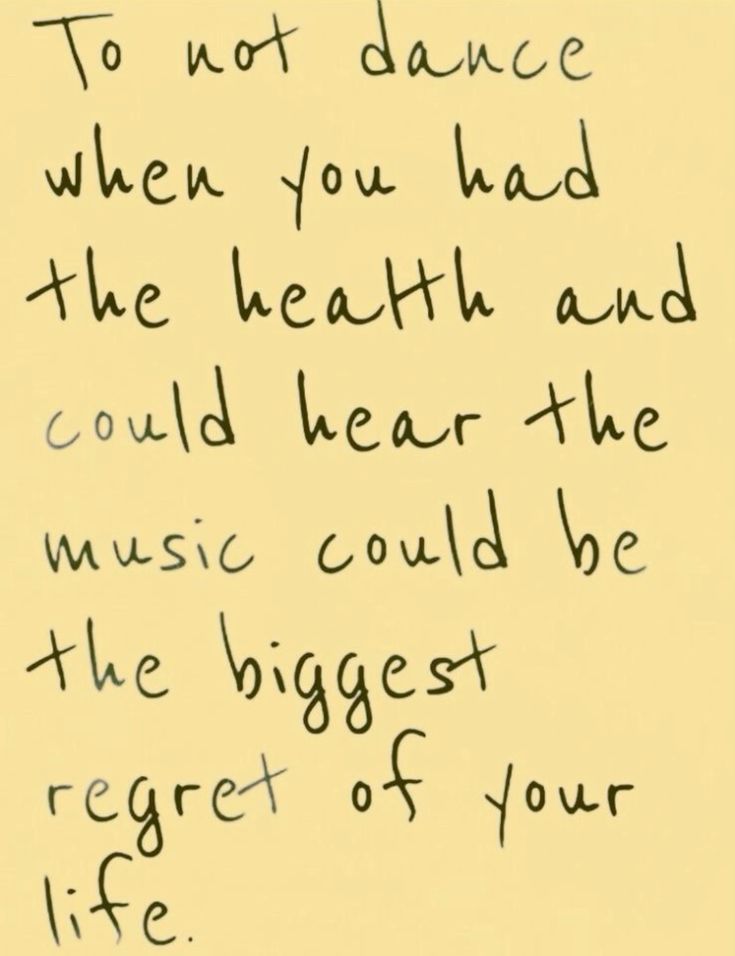 To not dance
when you had
the health and
could hear the
music could be
the biggest
regret of your
life.